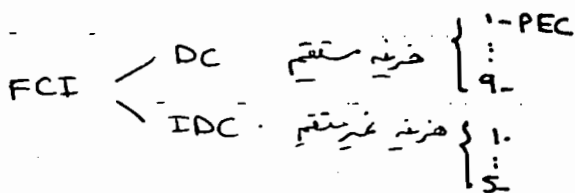 FCI
DC هزینه مستقیم { ۱- PEC
⋮
۹-
IDC . هزینه غیرمستقیم { ۱.
⋮
5-